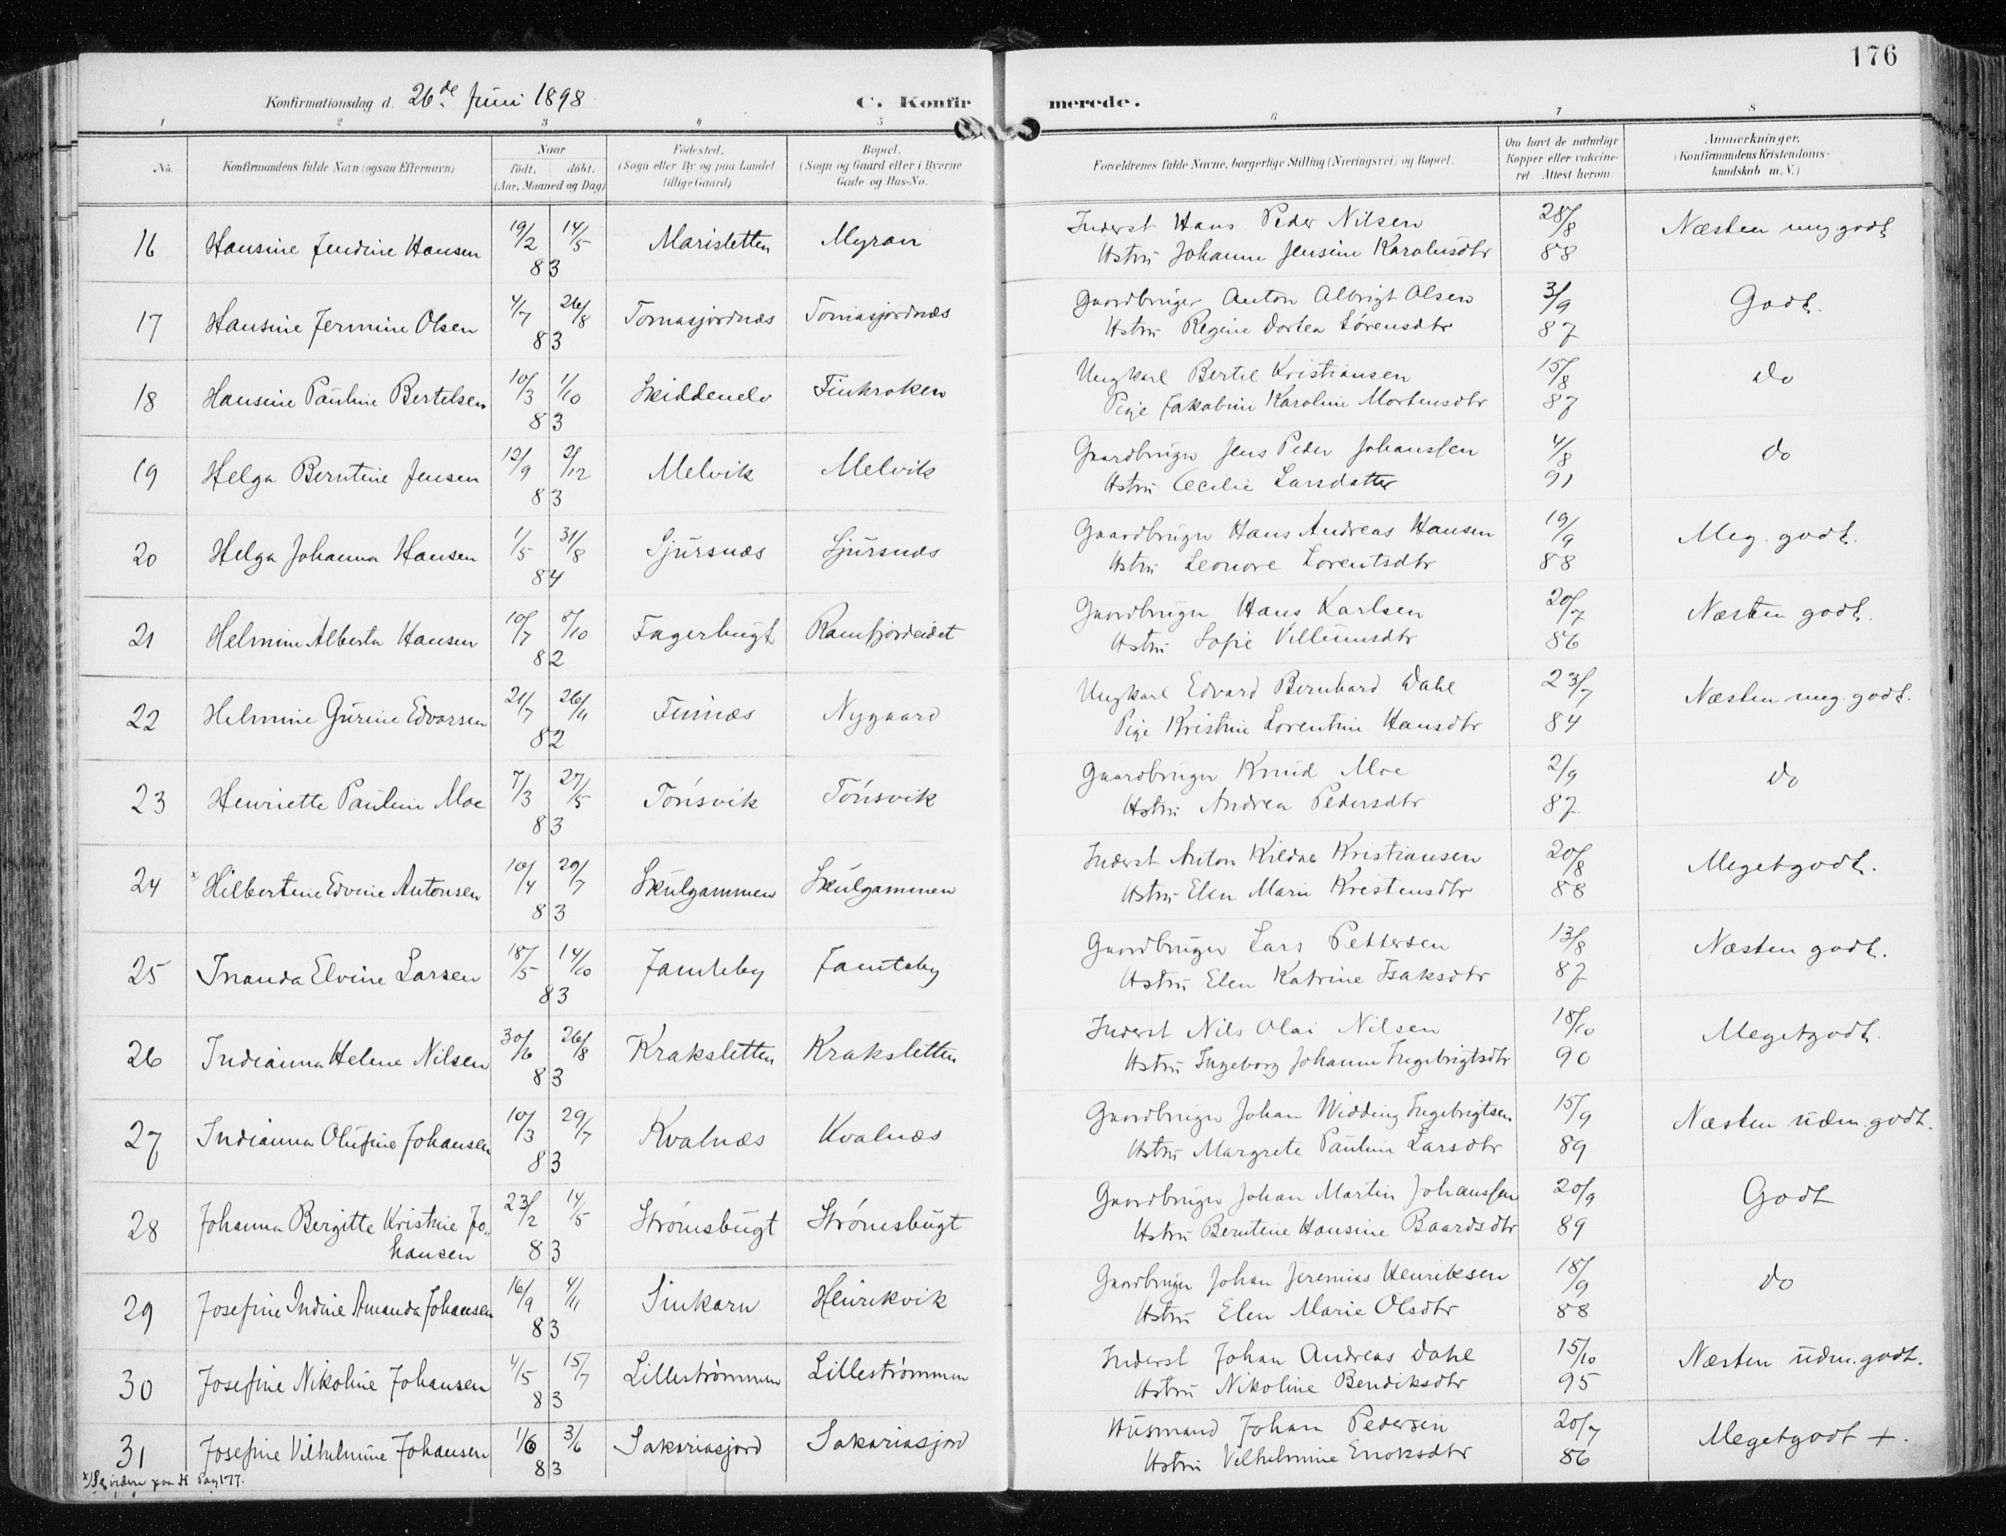 176
Konfirmationsdag d. 26de Juni 1898
C. Konfirmerede.
1 2 3 4 5 6 7 8
No.
Konfirmandens fulde Navn (ogsaa Efternavn)
Naar
født. døbt.
(Aar, Maaned og Dag)
Fødested.
(Sogn eller By og paa Landet
tillige Gaard)
Bopæl.
(Sogn og Gaard eller i Byerne
Gade og Hus-No.
Forældrenes fulde Navne, borgerlige Stilling (Næringsvei) og Bopæl.
Om havt de naturlige
Kopper eller vakcine-
ret Attest herom.
Anmærkninger.
(Konfirmandens Kristendoms-
kundskab m. V.)
16 Hansine Jendine Hansen 19/2 14/5 83 Marisletten Myran
Inderst Hans Peder Nilsen 28/8 Næsten meg. godt
Hstru Johanne Jensine Karolusdtr 88
17 Hansine Jermine Olsen 4/7 26/8 83 Tomasjordnæs Tomasjordnæs
Gaardbruger Anton Albrigt Olsen 3/9 Godt.
Hstru Regine Dortea Sørensdtr 87
18 Hansine Pauline Bertelsen 10/3 1/10 83 Skiddenelv Finkroken
Ungkarl Bertel Kristiansen 15/8 Do
Pige Jakobine Karoline Mortensdtr 87
19 Helga Berntine Jensen 12/9 2/12 83 Melvik Melvik
Gaardbruger Jens Peder Johanssen 4/8 Do
Hstru Cecilie Larsdatter 91
20 Helga Johanna Hansen 1/5 31/8 84 Sjursnæs Sjursnæs
Gaardbruger Hans Andreas Hansen 19/9 Meg. godt.
Hstru Leonore Lorentsdtr 88
21 Helmine Alberta Hansen 10/7 8/10 82 Fagerbugt Ramfjordeidet
Gaardbruger Hans Karlsen 20/7 Næsten godt.
Hstru Sofie Villumsdtr 86
22 Helmine Gurine Edvarsen 21/7 26/11 82 Finnæs Nygaard
Ungkarl Edvard Bernhard Dahl 23/7 Næsten meg. godt.
Pige Kristine Lorentine Hansdtr 84
23 Henriette Pauline Moe 7/3 27/5 83 Tønsvik Tønsvik
Gaardbruger Knud Moe 2/9 Do
Hstru Andrea Pedersdtr 87
24 x Hilbertine Edvine Antonsen 10/4 29/7 83 Skulgammen Skulgammen
Inderst Anton Kildal Kristiansen 20/8 Megetgodt.
Hstru Elen Marie Kristensdtr 88
25 Inanda Elvine Larsen 18/5 14/10 83 Jamteby Jamteby
Gaardbruger Lars Pettersen 13/8 Næsten godt.
Hstru Elen Katrine Isaksdtr 87
26 Indianna Helene Nilsen 30/6 26/8 83 Kraksletten Kraksletten
Inderst Nils Olai Nilsen 18/10 Megetgodt.
Hstru Ingeborg Johanne Ingebrigtsdtr 90
27 Indianna Olufine Johansen 10/3 29/7 83 Kvalnæs Kvalnæs
Gaardbruger Johan Widding Ingebrigtsen 15/9 Næsten udm. godt.
Hstru Margrete Pauline Larsdtr 89
28 Johanna Bergitte Kristine Jo-
hansen 23/2 14/5 83 Strømsbugt Strømsbugt
Gaardbruger Johan Martin Johanssen 20/9 Godt
Hstru Berntine Hansine Baardsdtr 89
29 Josefine Indine Amanda Johansen 16/9 4/11 83 Sinkarn Henrikvik
Gaardbruger Johan Jeremias Henriksen 18/9 Do
Hstru Elen Marie Olsdtr 88
30 Josefine Nikoline Johansen 4/5 15/7 83 Lillestrømmen Lillestrømmen
Inderst Johan Andreas Dahl 15/10 Næsten udm. godt.
Hstru Nikoline Bendiksdtr 95
31 Josefine Vilhelmine Johansen 1/6 3/6 83 Sakariasjord Sakariasjord
Husmand Johan Pedersen 20/7 Megetgodt +.
Hstru Vilhelmine Enoksdtr 86
x) Se videre paa H Pag 177.